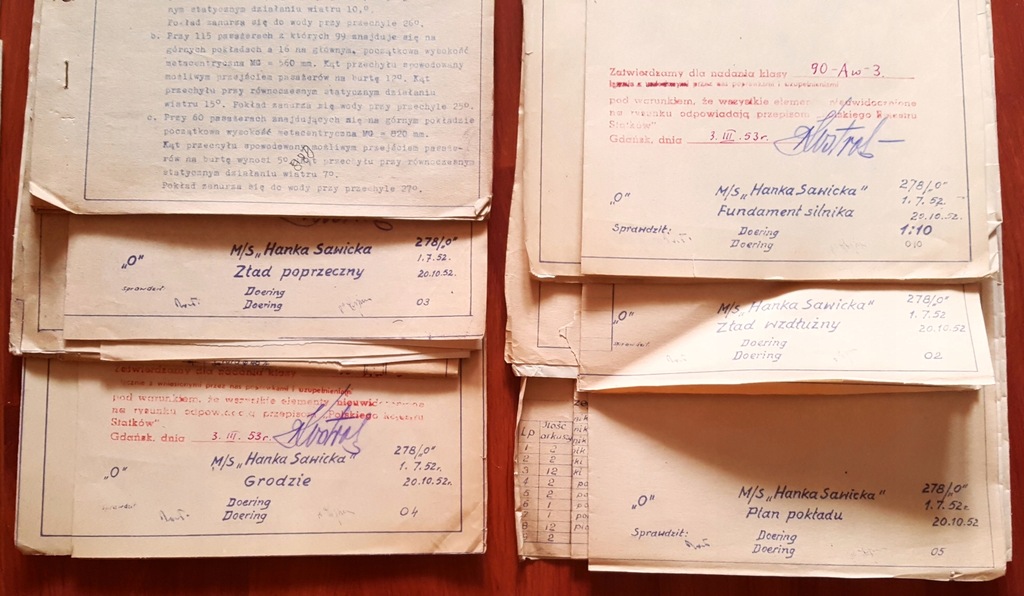 nym statycznym działaniu wiatru 10,0.
Pokład zanurza się do wody przy przechyle 26°.
b. Przy 115 pasażerach z których 99 znajduje się na
górnych pokładach a 16 na głównym, początkowa wysokość
metacentryczna MG = 560 mm. Kąt przechyłu spowodowany
możliwym przejściem pasażerów na burtę 12°. Kąt
przechyłu przy równoczesnym statycznym działaniu
wiatru 15°. Pokład zanurza się wody przy przechyle 25°.
c. Przy 60 pasażerach znajdujących się na głównym pokładzie
początkowa wysokość metacentryczna MG = 820 mm.
Kąt przechyłu spowodowany możliwym przejściem pasaże-
rów na burtę wynosi 5° Kąt przechyłu przy równoczesnym
statycznym działaniu wiatru 7°.
Pokład zanurza się do wody przy przechyle 27°.
„O"
M/S „Hanka Sawicka
278/„O"
1.7.52.
Zład poprzeczny
20.10.52.
sprawdził:
Doering
Doering
03
Zatwierdzamy dla nadania klasy
łącznie z wniesionymi przez nas poprawkami i uzupełnieniami
pod warunkiem, że wszystkie elementy nieuwidocznione
na rysunku odpowiadają przepisom „Polskiego Rejestru
Statków"
Gdańsk, dnia 3. III. 53r.
„O"
M/S „Hanka Sawicka"
278/„O"
1.7.52.
Grodzie
20.10.52r.
Doering
Doering
04
Zatwierdzamy dla nadania klasy 90-Aw-3.
pod warunkiem, że wszystkie elementy nieuwidocznione
na rysunku odpowiadają przepisom „Polskiego Rejestru
Statków"
Gdańsk, dnia 3. III. 53r.
„O"
M/S „Hanka Sawicka"
278/„O"
1.7.52.
Fundament silnika
20.10.52.
Sprawdził:
Doering
1:10
Doering
010
„O"
M/S „Hanka Sawicka"
278/„O"
1.7.52
Zład wzdłużny
20.10.52
sprawdził:
Doering
Doering
02
Lp
Ilość
arkuszy
1 2
2 2
3 12
4 2
5 2
6 1
7 1
8 12
9 2
„O"
M/S „Hanka Sawicka"
278/„O"
1.7.52.
Plan pokładu
20.10.52
Sprawdził:
Doering
Doering
05